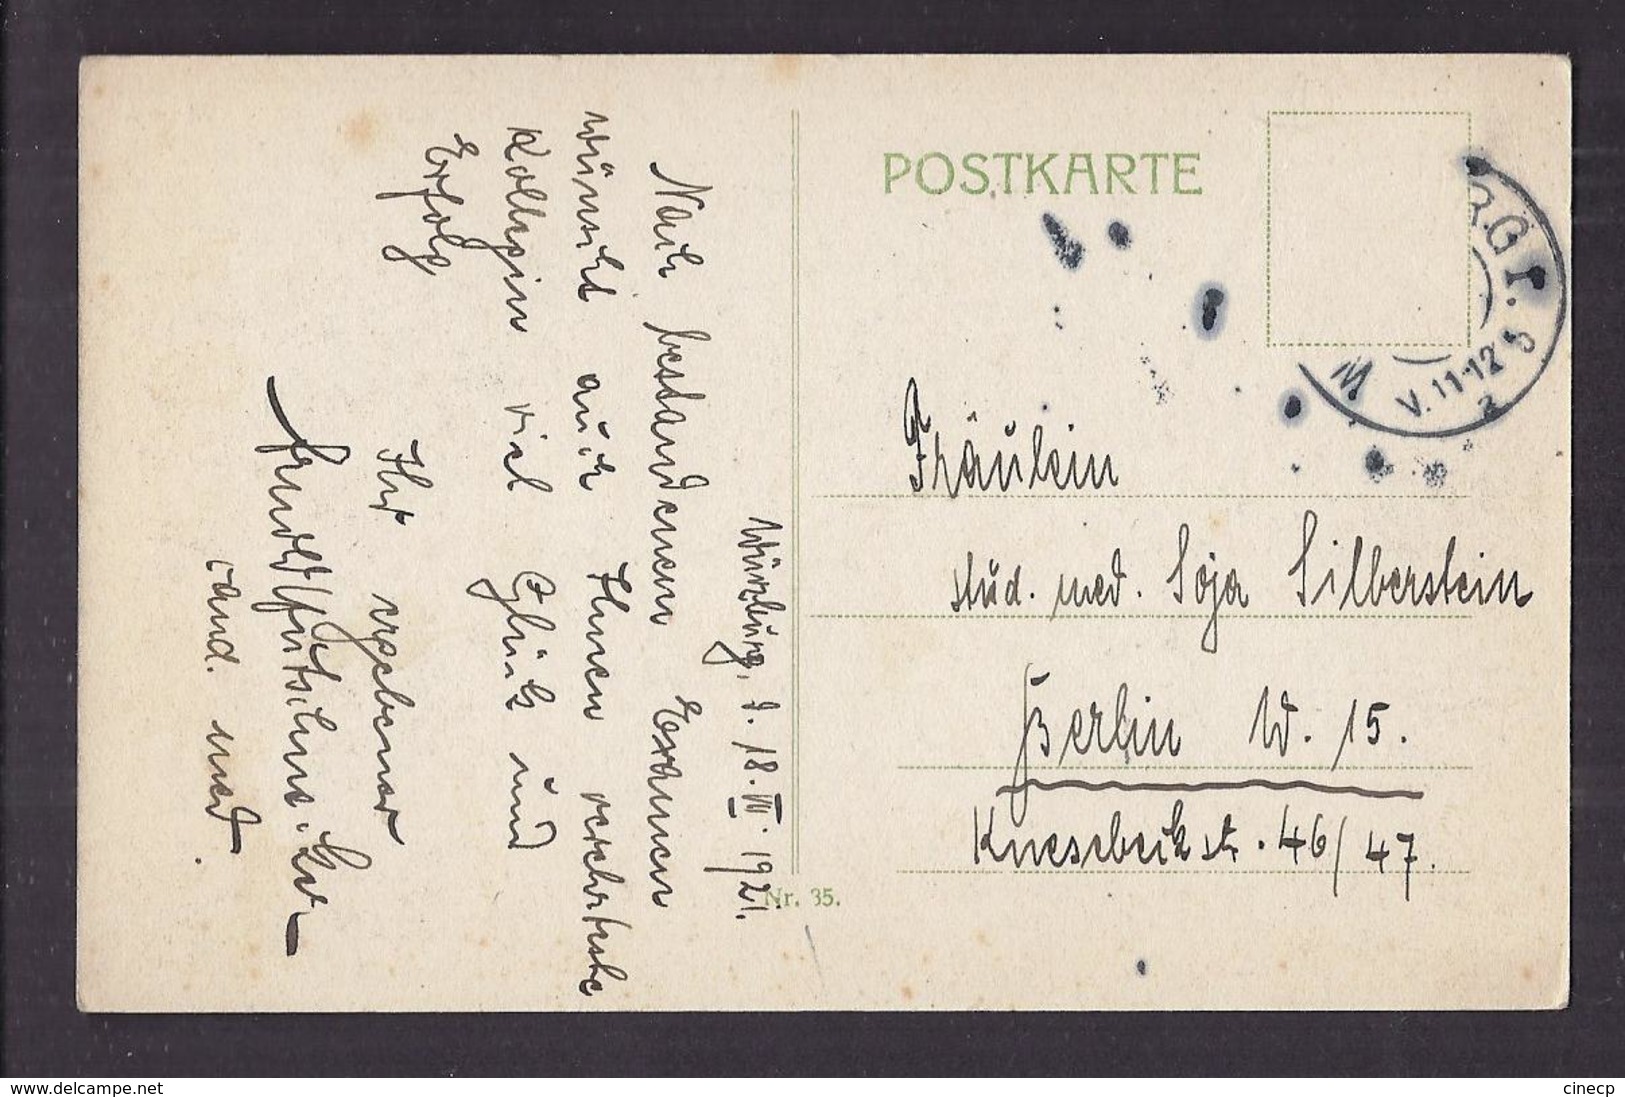 POSTKARTE
Würzburg, d. 18. VII. 1921.
Nach bestandenem Examen
wünscht auch Ihnen verehrteste
Kollegin viel Glück und
Erfolg
Ihr ergebener
cand. med.
V. 11-12
Fräulein
stud. med. Soja Silberstein
Berlin W. 15.
Knesebeckstr. 46/47.
Nr. 35.
www.delcampe.net
cinecp